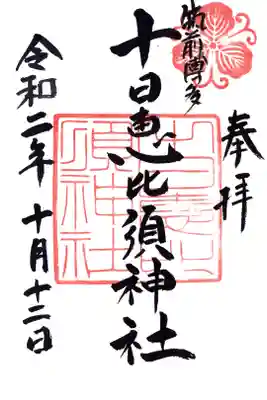 奉拝
筑前博多
十日恵比須神社
令和二年 十月十二日